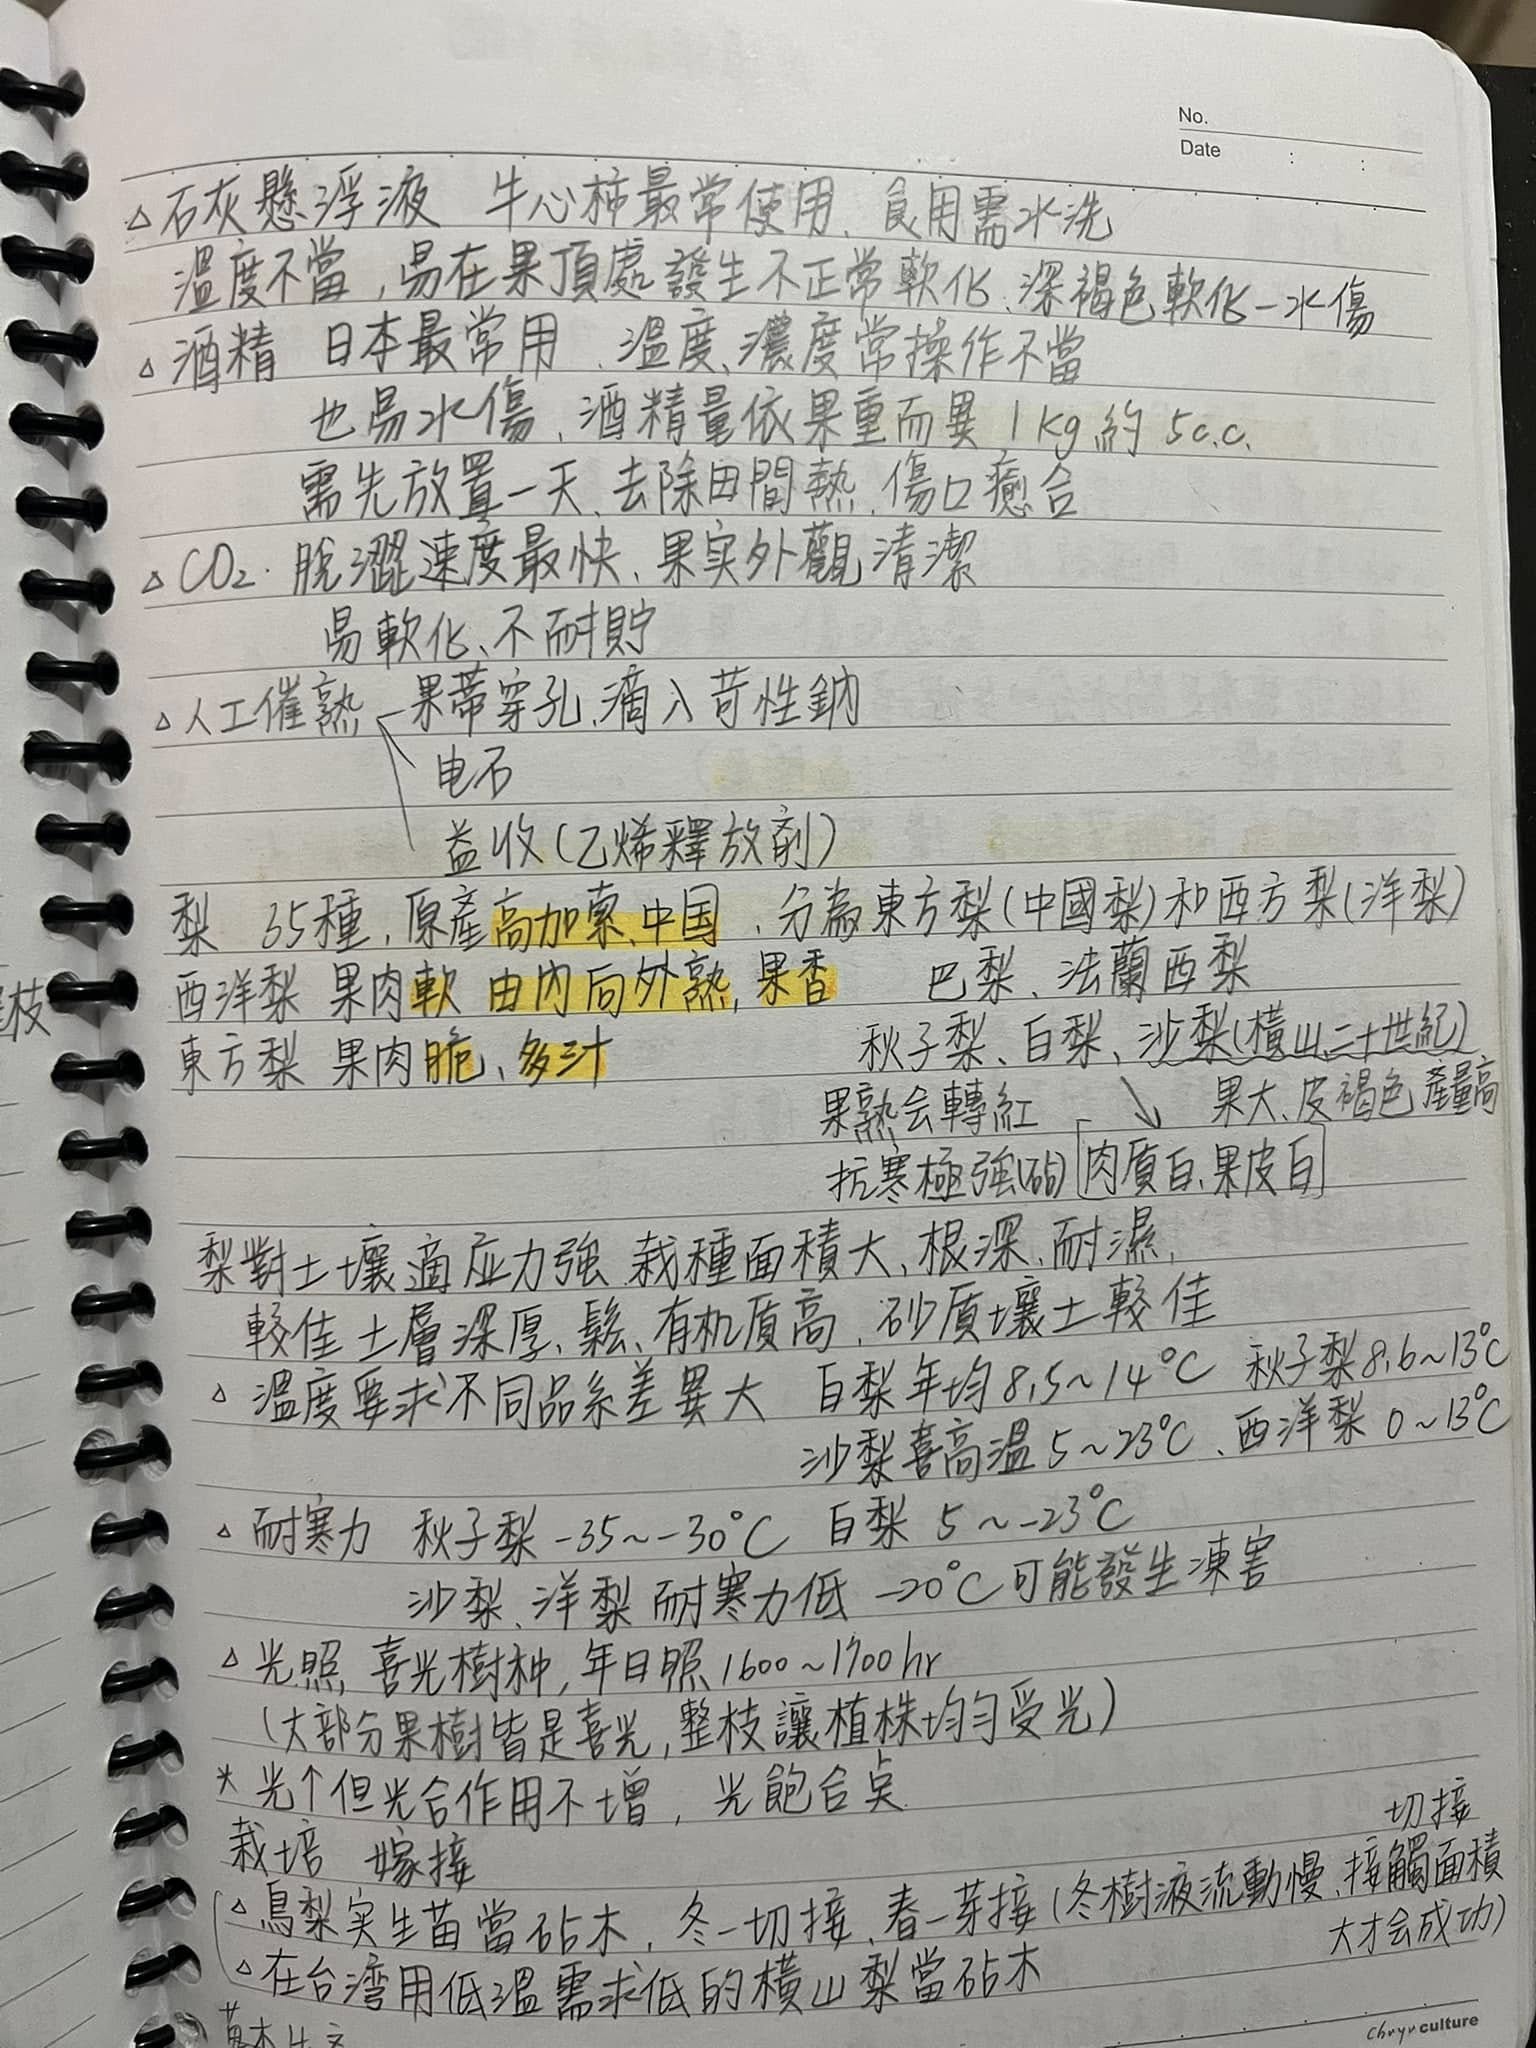 No.
Date : :
△石灰懸浮液 牛心柿最常使用、食用需水洗
溫度不當,易在果頂處發生不正常軟化、深褐色軟化-水傷
△酒精 日本最常用、溫度、濃度常操作不當
也易水傷、酒精量依果重而異 1kg約 5c.c.
需先放置一天、去除田間熱、傷口癒合
△CO₂. 脫澀速度最快、果实外觀清潔
易軟化、不耐貯
△人工催熟 - 果蒂穿孔、滴入苛性鈉
电石
益收(乙烯釋放劑)
梨 35種,原產高加索、中国、分為東方梨(中國梨)和西方梨(洋梨)
西洋梨 果肉軟 由內向外熟,果香 巴梨、法蘭西梨
東方梨 果肉脆、多汁 秋子梨、白梨、沙梨(橫山、二十世紀)
果熟会轉紅 果大、皮褐色 產量高
抗寒極強(砧) 肉质白、果皮白
梨對土壤適应力強 栽種面積大、根深、耐濕,
較佳土層深厚、鬆、有机质高、砂质壤土較佳
△溫度要求不同品系差異大 白梨年均8.5~14°C 秋子梨8.6~13°C
沙梨喜高溫5~23°C、西洋梨 0~13°C
△耐寒力 秋子梨 -35~-30°C 白梨 5~-23°C
沙梨、洋梨 耐寒力低 -20°C可能發生凍害
△光照 喜光樹种,年日照1600~1700hr
(大部分果樹皆是喜光,整枝讓植株均勻受光)
*光↑但光合作用不增,光飽合点
栽培 嫁接
切接
△鳥梨实生苗當砧木,冬-切接、春-芽接(冬樹液流動慢、接觸面積
大才会成功)
△在台湾用低溫需求低的橫山梨當砧木
枝
Chuyu culture